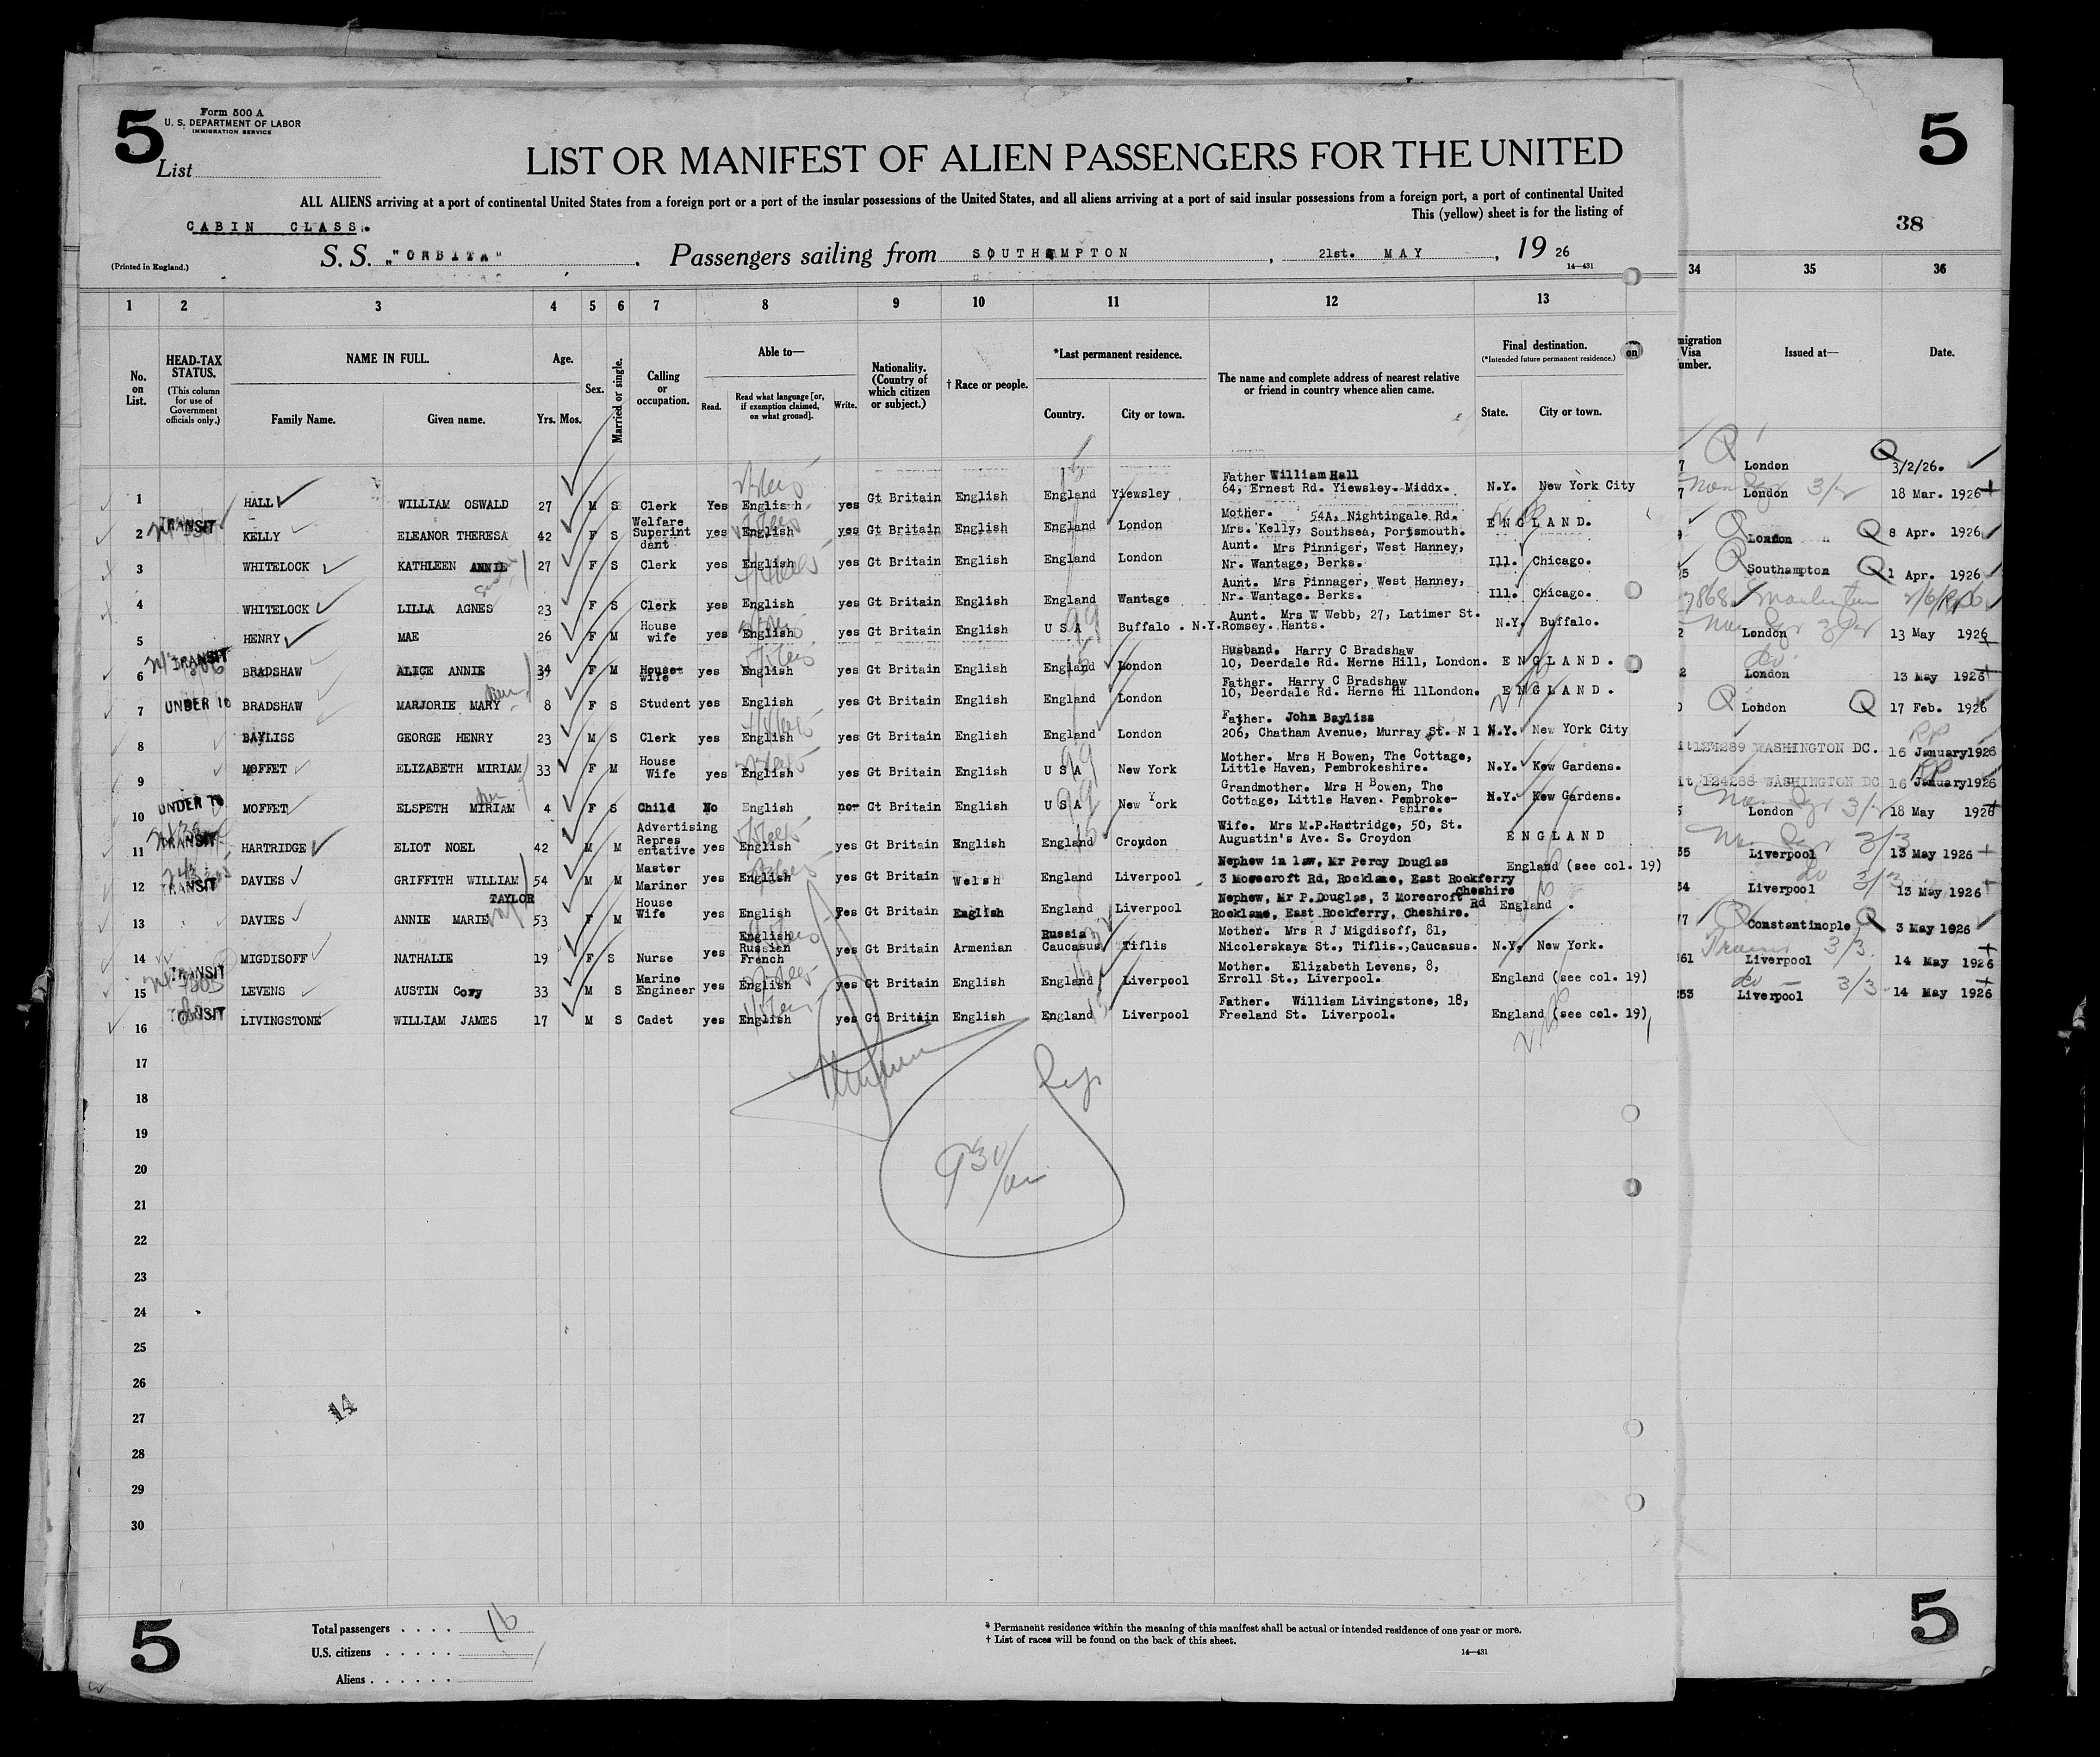 5
Form 500 A
U. S. DEPARTMENT OF LABOR
IMMIGRATION SERVICE
List
LIST OR MANIFEST OF ALIEN PASSENGERS FOR THE UNITED
ALL ALIENS arriving at a port of continental United States from a foreign port or a port of the insular possessions of the United States, and all aliens arriving at a port of said insular possessions from a foreign port, a port of continental United
This (yellow) sheet is for the listing of
CABIN CLASS.
S. S. "ORBITA" . Passengers sailing from SOUTHAMPTON , 21st. MAY , 19 26
(Printed in England.)
14—431
1 2 3 4 5 6 7 8 9 10 11 12 13
No. on List.
HEAD-TAX STATUS.
(This column for use of Government officials only.)
NAME IN FULL.
Family Name. Given name.
Age.
Yrs. Mos.
Sex.
Married or single.
Calling or occupation.
Able to—
Read. Read what language [or, if exemption claimed, on what ground]. Write.
Nationality. (Country of which citizen or subject.)
† Race or people.
*Last permanent residence.
Country. City or town.
The name and complete address of nearest relative or friend in country whence alien came.
Final destination.
(*Intended future permanent residence.)
State. City or town.
on
1 HALL WILLIAM OSWALD 27 M S Clerk Yes English yes Gt Britain English England Yiewsley Father William Hall 64, Ernest Rd. Yiewsley. Middx. N.Y. New York City
2 TRANSIT KELLY ELEANOR THERESA 42 F S Welfare Superint dant yes English yes Gt Britain English England London Mother. 54A, Nightingale Rd. Mrs. Kelly, Southsea, Portsmouth. ENGLAND.
3 WHITELOCK KATHLEEN ANNIE 27 F S Clerk yes English yes Gt Britain English England London Aunt. Mrs Pinniger, West Hanney, Nr. Wantage, Berks. Ill. Chicago.
4 WHITELOCK LILLA AGNES 23 F S Clerk yes English yes Gt Britain English England Wantage Aunt. Mrs Pinnager, West Hanney, Nr. Wantage. Berks. Ill. Chicago.
5 HENRY MAE 26 F M House wife yes English yes Gt Britain English U S A Buffalo . N.Y. Aunt. Mrs W Webb, 27, Latimer St. Romsey. Hants. N.Y. Buffalo.
6 TRANSIT BRADSHAW ALICE ANNIE 34 37 F M House wife yes English yes Gt Britain English England London Husband. Harry C Bradshaw 10, Deerdale Rd. Herne Hill, London. ENGLAND.
7 UNDER 16 BRADSHAW MARJORIE MARY 8 F S Student yes English yes Gt Britain English England London Father. Harry C Bradshaw 10, Deerdale Rd. Herne Hi llLondon. ENGLAND.
8 BAYLISS GEORGE HENRY 23 M S Clerk yes English yes Gt Britain English England London Father. John Bayliss 206, Chatham Avenue, Murray St. N 1 N.Y. New YOrk City
9 MOFFET ELIZABETH MIRIAM 33 F M House Wife yes English yes Gt Britain English U S A New York Mother. Mrs H Bowen, The Cottage, Little Haven, Pembrokeshire. N.Y. Kew Gardens.
10 UNDER 16 MOFFET ELSPETH MIRIAM 4 F S Child No English no Gt Britain English U S A New York Grandmother. Mrs H Bowen, The Cottage, Little Haven. Pembroke- shire. N.Y. Kew Gardens.
11 TRANSIT HARTRIDGE ELIOT NOEL 42 M M Advertising Repres entative yes English yes Gt Britain English England Croydon Wife. Mrs M.P.Hartridge, 50, St. Augustin's Ave. S. Croydon ENGLAND
12 TRANSIT DAVIES GRIFFITH WILLIAM TAYLOR 54 M M Master Mariner yes English yes Gt Britain Welsh England Liverpool Nephew in law, Mr Percy Douglas 3 Morecroft Rd, Rocklane, East Rockferry Cheshire England (see col. 19)
13 DAVIES ANNIE MARIE 53 F M House Wife yes English Yes Gt Britain English England Liverpool Nephew, Mr P.Douglas, 3 Morecroft Rd Rocklane, East Rockferry, Cheshire. England .
14 MIGDISOFF NATHALIE 19 F S Nurse yes English Russian French yes Gt Britain Armenian Russia Caucasus Tiflis Mother. Mrs R J Migdisoff, 81, Nicolerskaya St., Tiflis.,Caucasus. N.Y. New York.
15 TRANSIT LEVENS AUSTIN Cory 33 M S Marine Engineer yes English yes Gt Britain English England Liverpool Mother. Elizabeth Levens, 8, Erroll St., Liverpool. England (see col. 19)
16 LIVINGSTONE WILLIAM JAMES 17 M S Cadet yes English yes Gt Britain English England Liverpool Father. William Livingstone, 18, Freeland St. Liverpool. England (see col. 19)
17
18
19
20
21
22
23
24
25
26
27
28
29
30
14
930/am
Total passengers . . . . 16
U.S. citizens . . . . .
Aliens . . . . . .
* Permanent residence within the meaning of this manifest shall be actual or intended residence of one year or more.
† List of races will be found on the back of this sheet.
14—431
5
5
38
34 35 36
migration Visa umber. Issued at— Date.
7 London 3/2/26.
7 London 18 Mar. 1926
9 London 8 Apr. 1926
5 Southampton 1 Apr. 1926
2 London 13 May 1926
2 London 13 May 1926
0 London 17 Feb. 1926
it 124289 WASHINGTON DC. 16 January1926
it 124288 WASHINGTON DC 16 January1926
5 London 18 May 1926
35 Liverpool 13 May 1926
34 Liverpool 13 May 1926
77 Constantinople 3 May 1926
361 Liverpool 14 May 1926
253 Liverpool 14 May 1926
5